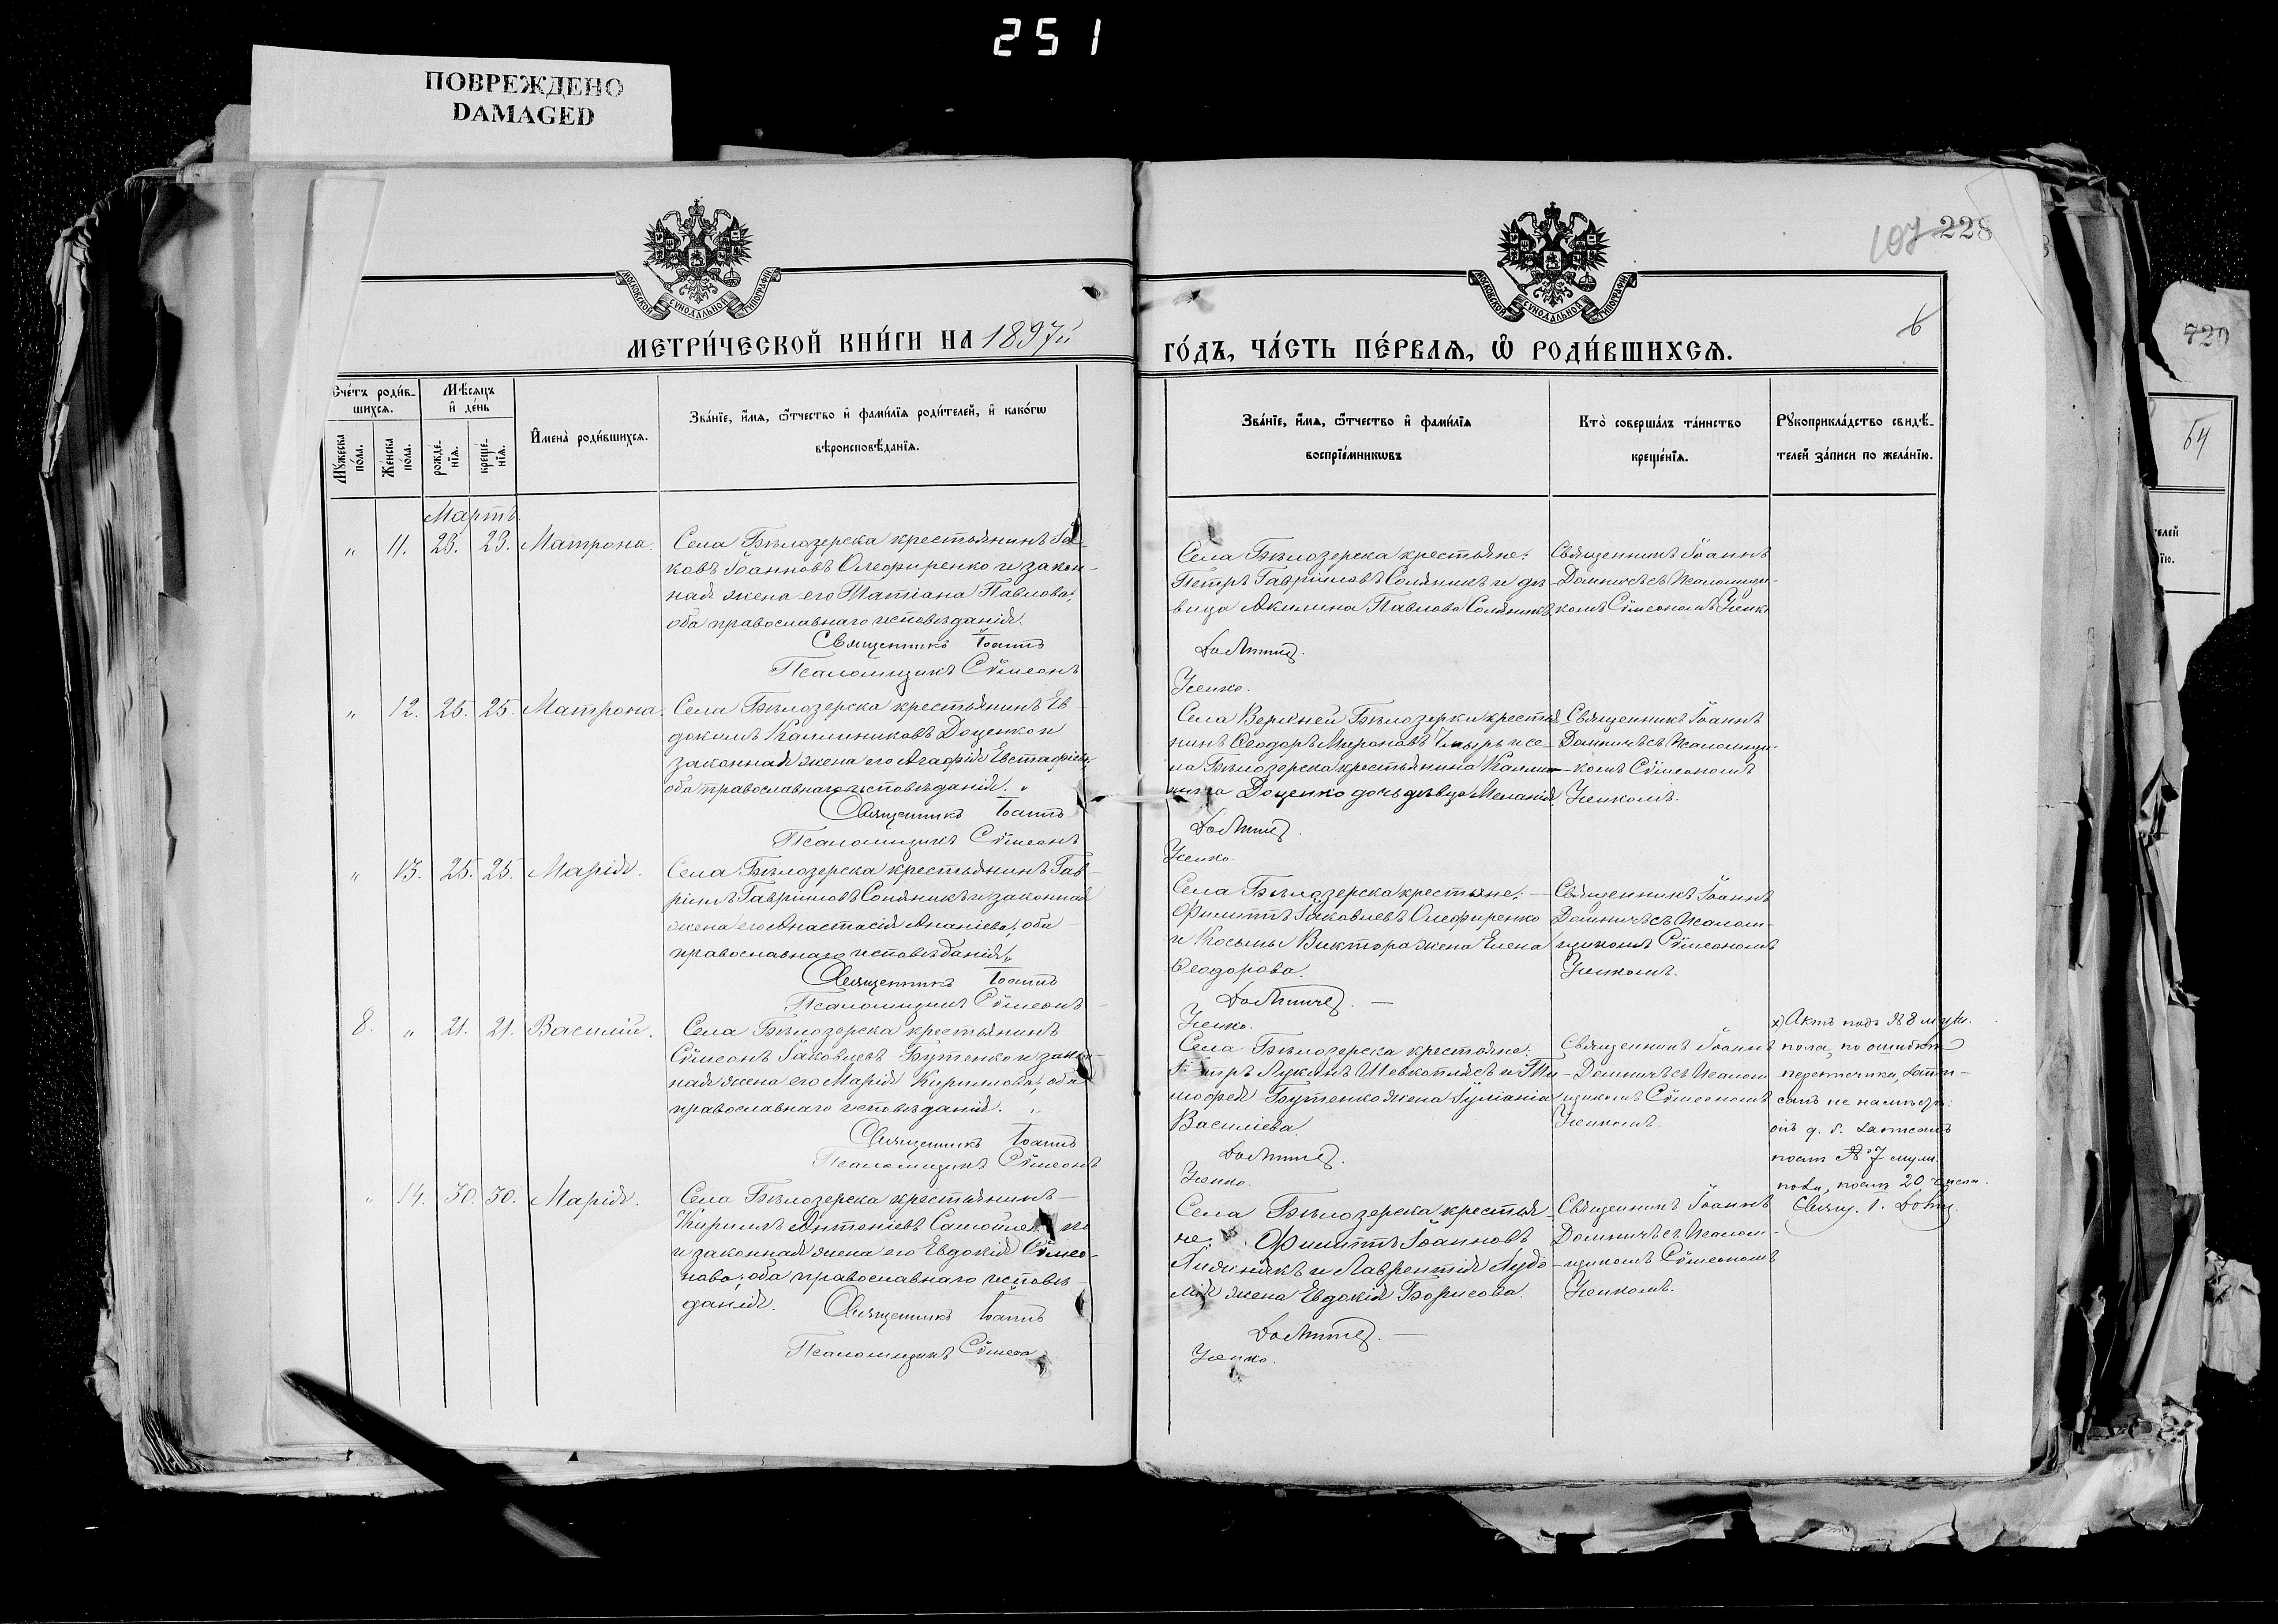 251
ПОВРЕЖДЕНО
DAMAGED
107 228
6
МЕТРИ́ЧЕСКОЙ КНИ́ГИ НА 1897й
ГО́ДЪ, ЧА́СТЬ ПЕ́РВАЯ, Ѽ РОДИ́ВШИХСЯ.
Сче́тъ роди́в-
шихся.
Мужеска по́ла.
Же́нска по́ла.
Мѣ́сяцъ
и҆ де́нь
рожде-
нїя.
креще-
нїя.
И҆мена̀ роди́вшихся.
Зва́нїе, и҆́мя, ѻ҆́тчество и҆ фами́лїя роди́телей, и҆ како́гѡ
вѣроисповѣ́данїя.
Зва́нїе, и҆́мя, ѻ҆́тчество и҆ фами́лїя
воспрїе́мникѡвъ
Кто̀ соверша́лъ та́инство
креще́нїя.
Рꙋкоприкла́дство свидѣ́-
телей за́писи по жела́нїю.
Мартъ.
„ 11. 23. 23. Матрона.
Села Бѣлозерска крестьянинъ Іа-
ковъ Іоанновъ Олефиренко и закон-
ная жена его Татіана Павлова,
оба православнаго исповѣданія.
Священникъ Іоаннъ
Псаломщикъ Сѵмеонъ
Села Бѣлозерска крестьяне:
Петръ Гавріиловъ Соляникъ и дѣ-
вица Акилина Павлова Соляникъ
Священникъ Іоаннъ
Домничъ съ псаломщи-
комъ Сѵмеономъ
„ 12. 25. 25. Матрона.
Села Бѣлозерска крестьянинъ Ев-
докимъ Каллиниковъ Доценко и
законная жена его Агафія Евстафіева,
оба православнаго исповѣданія.
Священникъ Іоаннъ
Псаломщикъ Сѵмеонъ
Села Верхней Бѣлозерки крестья
нинъ Ѳеодоръ Мироновъ и се-
ла Бѣлозерска крестьянина Калли-
ника Доценко дочь дѣвица Меланія
Священникъ Іоаннъ
Домничъ съ псаломщи-
комъ Сѵмеономъ
„ 13. 25. 25. Марія.
Села Бѣлозерска крестьянинъ Гав-
ріилъ Гавріиловъ Соляникъ и законная
жена его Анастасія Ананіева, оба
православнаго исповѣданія
Священникъ Іоаннъ
Псаломщикъ Сѵмеонъ
Села Бѣлозерска крестьяне:
Филиппъ Іаковлевъ Олефиренко
и Косьмы Виктора жена Елена
Ѳеодорова.
Священникъ Іоаннъ
Домничъ съ псалом-
щикомъ Сѵмеономъ
8. „ 21. 21. Василій.
Села Бѣлозерска крестьянинъ
Сѵмеонъ Іаковлевъ Бутенко и закон-
ная жена его Марія Кириллова, оба
православнаго исповѣданія.
Священникъ Іоаннъ
Псаломщикъ Сѵмеонъ
Села Бѣлозерска крестьяне:
Петръ Лукинъ и Ти-
мофея Бутенко жена Іуліанія
Василіева.
Священникъ Іоаннъ
Домничъ съ псалом-
щикомъ Сѵмеономъ
х) Актъ подъ № 8 муж.
пола, по ошибкѣ
№ 7 муж.
20 числа.
Свящ. І. Домн.
„ 14. 30. 30. Марія.
Села Бѣлозерска крестьянинъ
Кириллъ Антоніевъ
и законная жена его Евдокія Сѵмео-
нова, оба православнаго исповѣ-
данія. Священникъ Іоаннъ
Псаломщикъ Сѵмеонъ
Села Бѣлозерска крестья-
не: Филиппъ Іоанновъ
и Лаврентія
жена Евдокія Борисова.
Священникъ Іоаннъ
Домничъ съ псалом-
щикомъ Сѵмеономъ